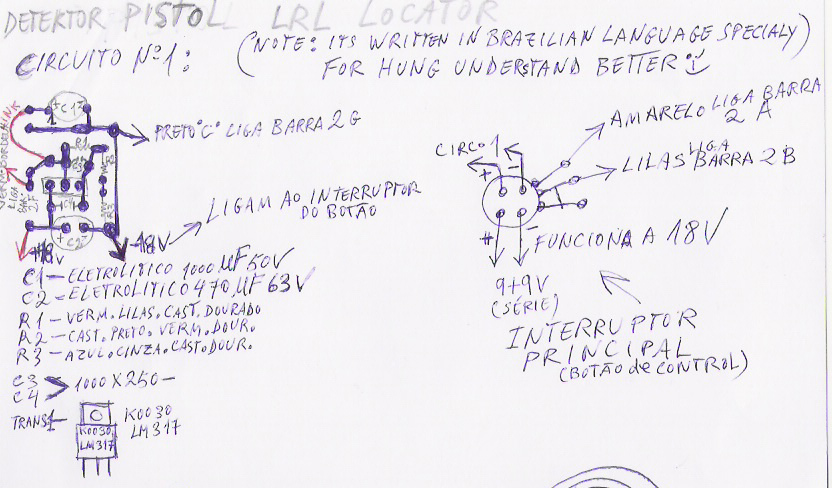 DETEKTOR PISTOL LRL LOCATOR
CIRCUITO Nº1:
(NOTE: ITS WRITTEN IN BRAZILIAN LANGUAGE SPECIALY)
FOR HUNG UNDERSTAND BETTER
PRETO "C" LIGA BARRA 2G
LIGAM AO INTERRUPTOR
DO BOTÃO
-18V
+18V
C1
C2
R1
C1 - ELETROLITICO 1000 µF 50V
C2 - ELETROLITICO 470 µF 63V
R1 - VERM. LILAS. CAST. DOURADO
R2 - CAST. PRETO. VERM. DOUR.
R3 - AZUL. CINZA. CAST. DOUR.
C3
C4 > 1000 X 250 -
TRANS1 -
K0030
LM317
K0030
LM317
AMARELO LIGA BARRA
2 A
CIRCO 1
LILAS LIGA BARRA 2B
+
-
FUNCIONA A 18V
9+9V
(SÉRIE)
INTERRUPTOR
PRINCIPAL
(BOTÃO de CONTROL)